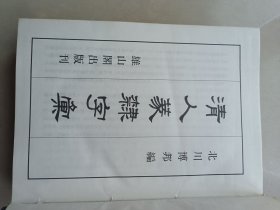 北川博邦編
清人篆隸字彙
雄山閣出版刊